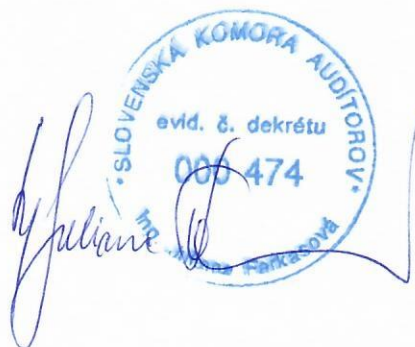 SLOVENSKÁ KOMORA AUDÍTOROV
evid. č. dekrétu
000 474
Ing. Farkašová